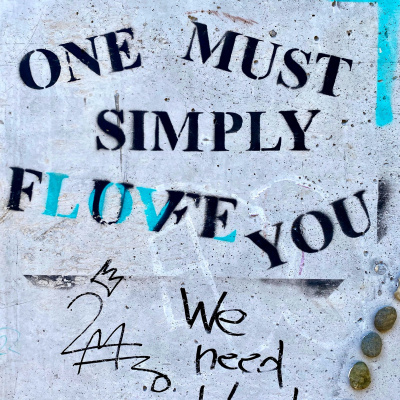 ONE MUST
SIMPLY
FLOVE YOU
We
need